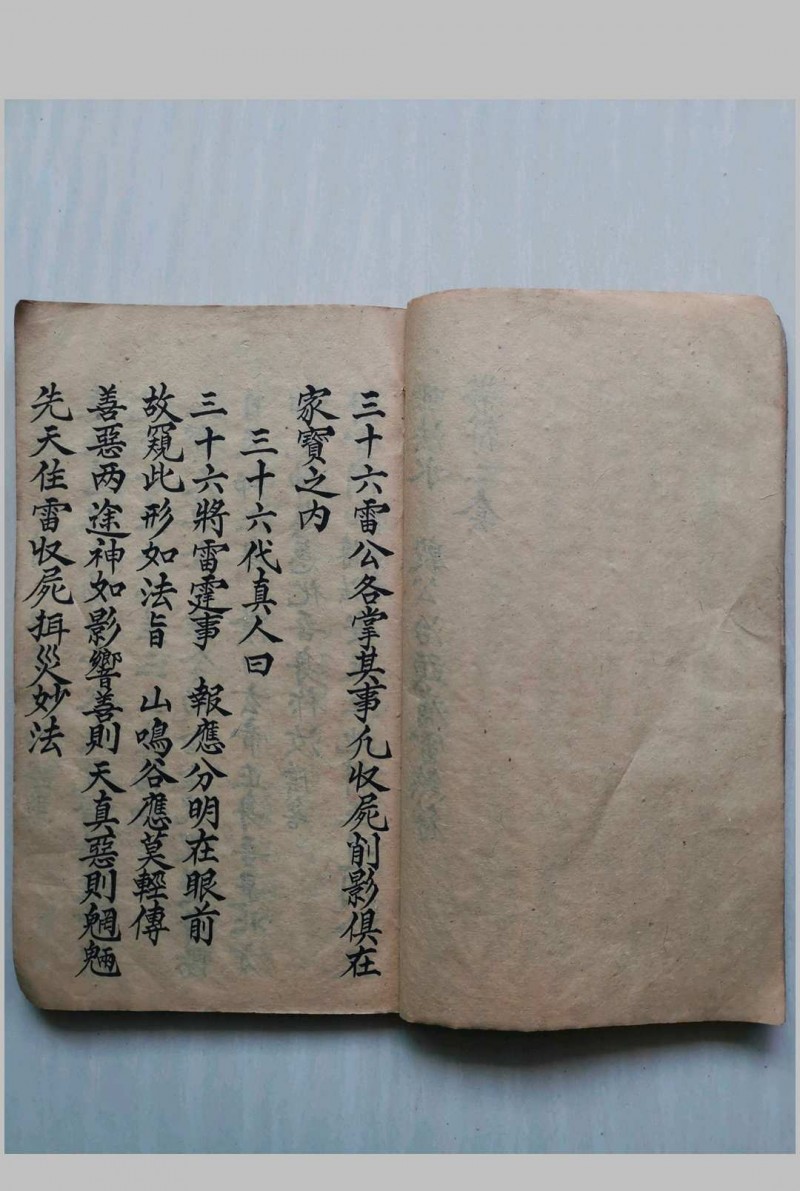 三十六雷公各掌其事凢收屍削影俱在
家寶之内
三十六代真人曰
三十六將雷霆事 報應分明在眼前
故窺此形如法旨 山鳴谷應莫輕傳
善惡两途神如影響善則天真惡則魍魎
先天住雷收屍拝災妙法